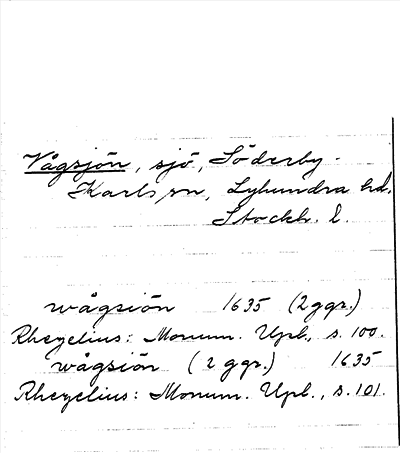 Vågsjön, sjö, Söderby-
Karls sn, Lyhundra hd,
Stockh. l.
wågsiön 1635 (2 ggr.)
Rhezelius: Monum. Upl., s. 100.
wågsiön (2 ggr.) 1635
Rhezelius: Monum. Upl., s. 101.